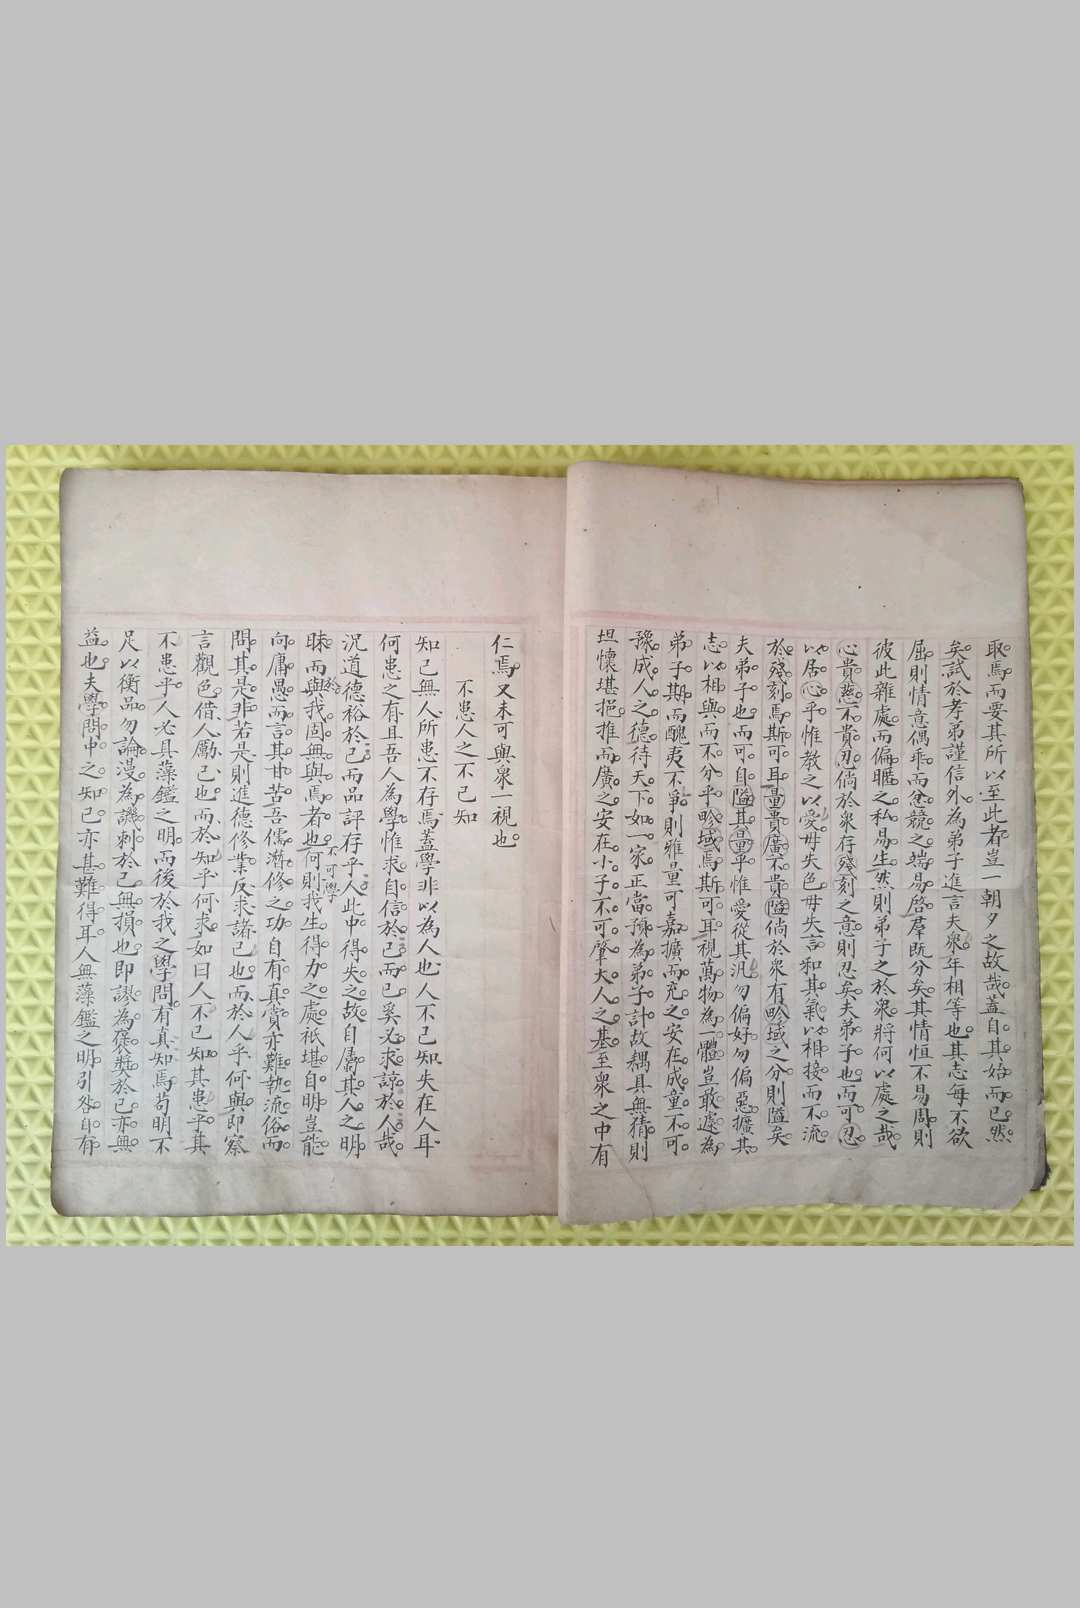 取焉而要其所以至此者豈一朝夕之故哉蓋自其始而已然
矣試於孝弟謹信外為弟子進言夫衆年相等也其志每不欲
屈則情意偶乖而忿競之端易啓羣既分矣其情恒不易周則
彼此雜處而偏暱之私易生然則弟子之於衆將何以處之哉
心貴慈不貴忍倘於衆存殘刻之意則忍矣夫弟子也而可忍
以居心乎惟教之以愛毋失色毋失言和其氣以相接而不流
於殘刻焉斯可耳量貴廣不貴隘倘於衆有畛域之分則隘矣
夫弟子也而可自隘其量乎惟愛從其汎勿偏好勿偏惡擴其
志以相與而不分乎畛域焉斯可耳視萬物為一體豈敢遽為
弟子期而醜夷不爭則雅量可嘉擴而充之安在成童不可
豫成人之德待天下如一家正當預為弟子計故耦具無猜則
坦懷堪挹推而廣之安在小子不可肇大人之基至衆之中有
仁焉又未可與衆一視也
不患人之不己知
知己無人所患不存焉蓋學非以為人也人不己知失在人耳
何患之有且吾人為學惟求自信於己而已奚必求諒於人哉
況道德裕於己而品評存乎人此中得失之故自屬其人之明
昧而與於我固無與焉者也何則我生得力之處祇堪自明豈能
不可學
向庸愚而言其甘苦吾儒漸修之功自有真賞亦難執流俗而
問其是非若是則進德修業反求諸己也而於人乎何與即察
言觀色借人勵己也而於知乎何求如曰人不己知其患乎其
不患乎人必具藻鑑之明而後於我之學問有真知焉苟明不
足以衡品勿論漫為譏刺於己無損也即謬為褒獎於己亦無
益也夫學問中之知己亦甚難得耳人無藻鑑之明引咎自有